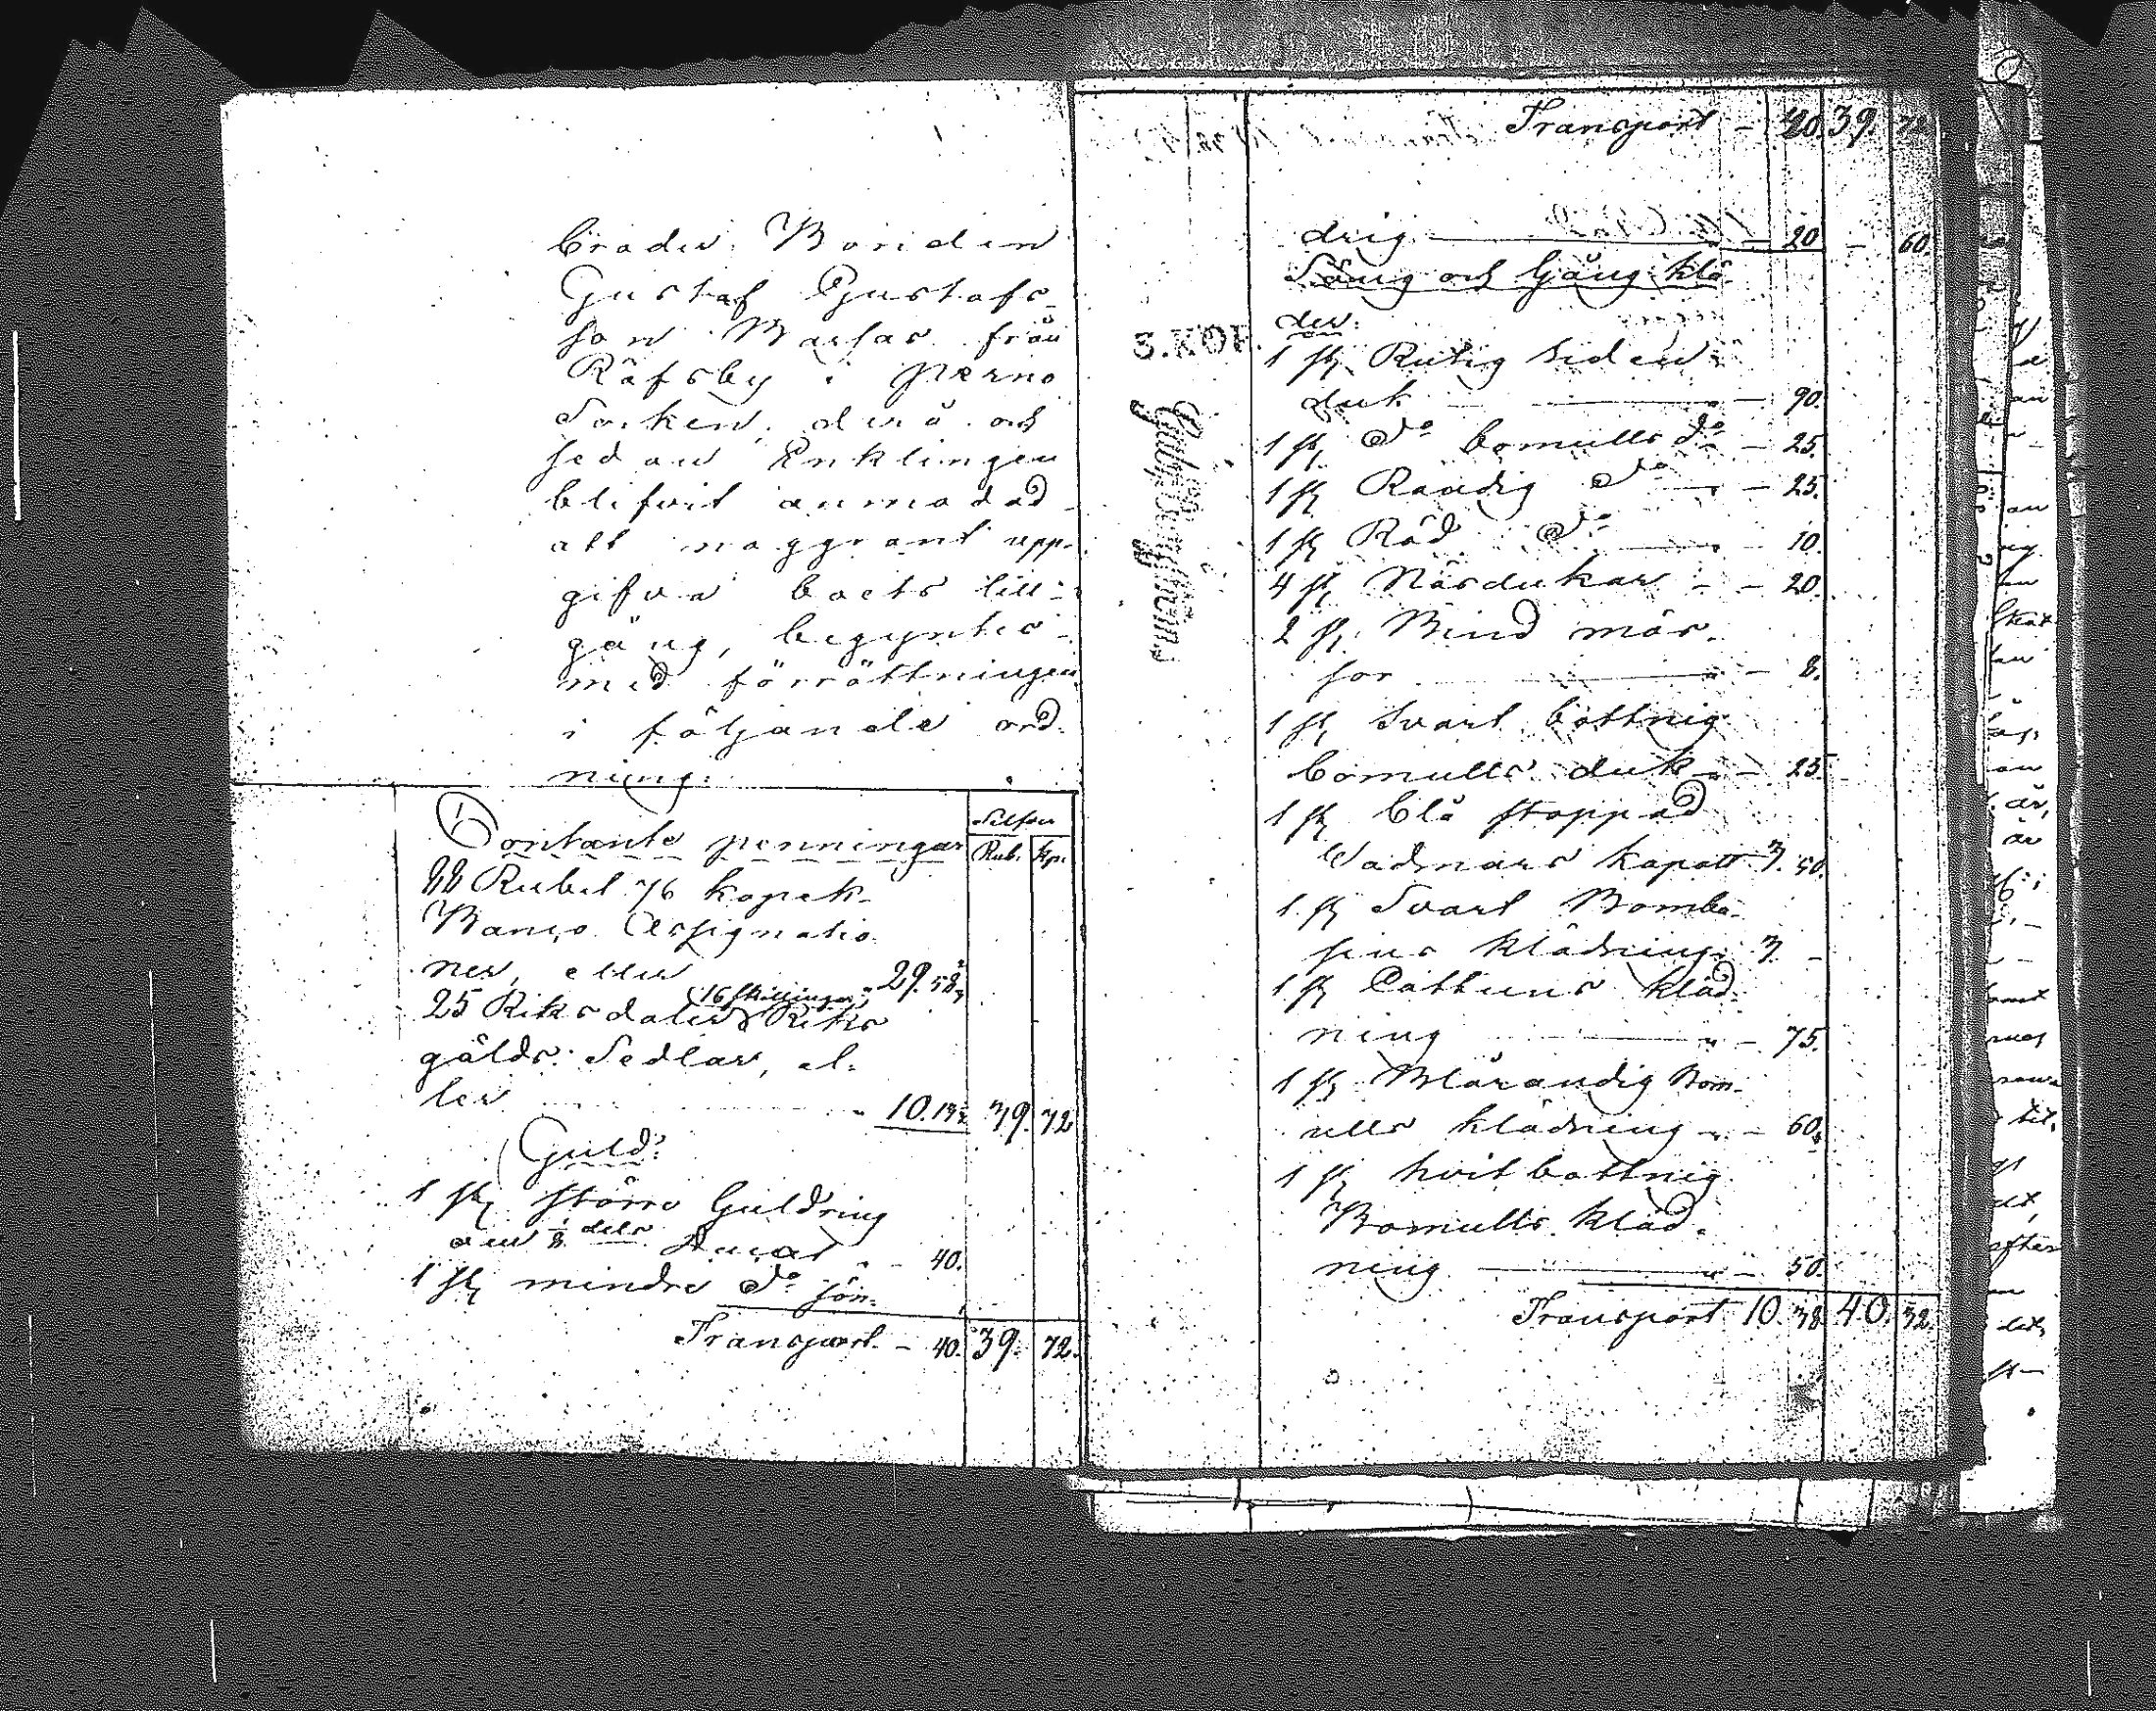 broder Bonden
Gustaf Gustafs-
son Barsas från
Räfsby i Perno
Socken, derå och
sedan Enklingen
blifvit anmodad
att noggrant upp-
gifva boets till-
gång, begyntes
med förrättningen
i följande ord-
ning:
Silfver
Contante penningar Rub. Kp.
88 Rubel 76 kopek
Banco Assignatio-
ner, eller 29. 58
16 skillingar
25 Riksdaler Riks
gälds Sedlar, el-
ler 10. 13 39. 72
Guld:
1 st. större Guldring
om 1/8 dels Ducat - 40.
1 st. mindre do sön-
Transport - 40. 39. 72.
Transport - 40. 39. 72
drig - 20 - 60.
Säng och Gång klä-
der:
3. KOP.
1 st. Rutig siden
duk - 90.
1 st. do bomulls do - 25.
1 st. Randig do - 25.
1 st. Röd do - 10.
4 st. Näsdukar - 20.
2 st. Bind mös-
sor - 8.
1 st. svart bottnig
bomulls duk - 25.
1 st. blå stoppad
Vadmars kapott 3. 50.
1 st. Svart Bomba-
sins klädning 3. -
1 st. Cattuns kläd-
ning - 75.
1 st. Blårandig Bom-
ulls klädning - 60.
1 st. hvit bottnig
Bomulls kläd-
ning - 50.
Transport 10. 38. 40. 32.